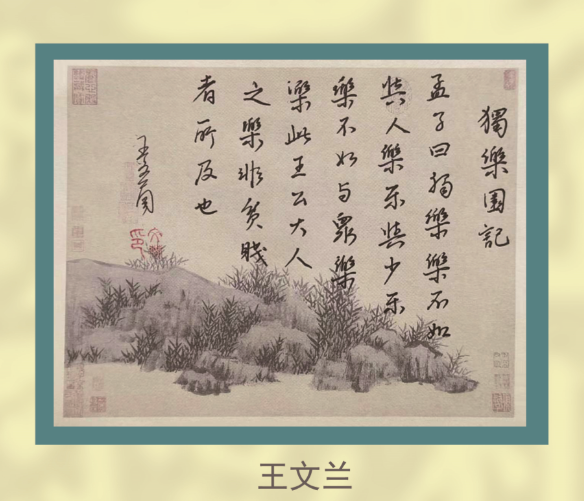 獨樂園記
孟子曰獨樂樂不如
與人樂樂與少樂
樂不如与眾樂
樂此王公大人
之樂非貧賤
者所及也
王文蘭
王文兰